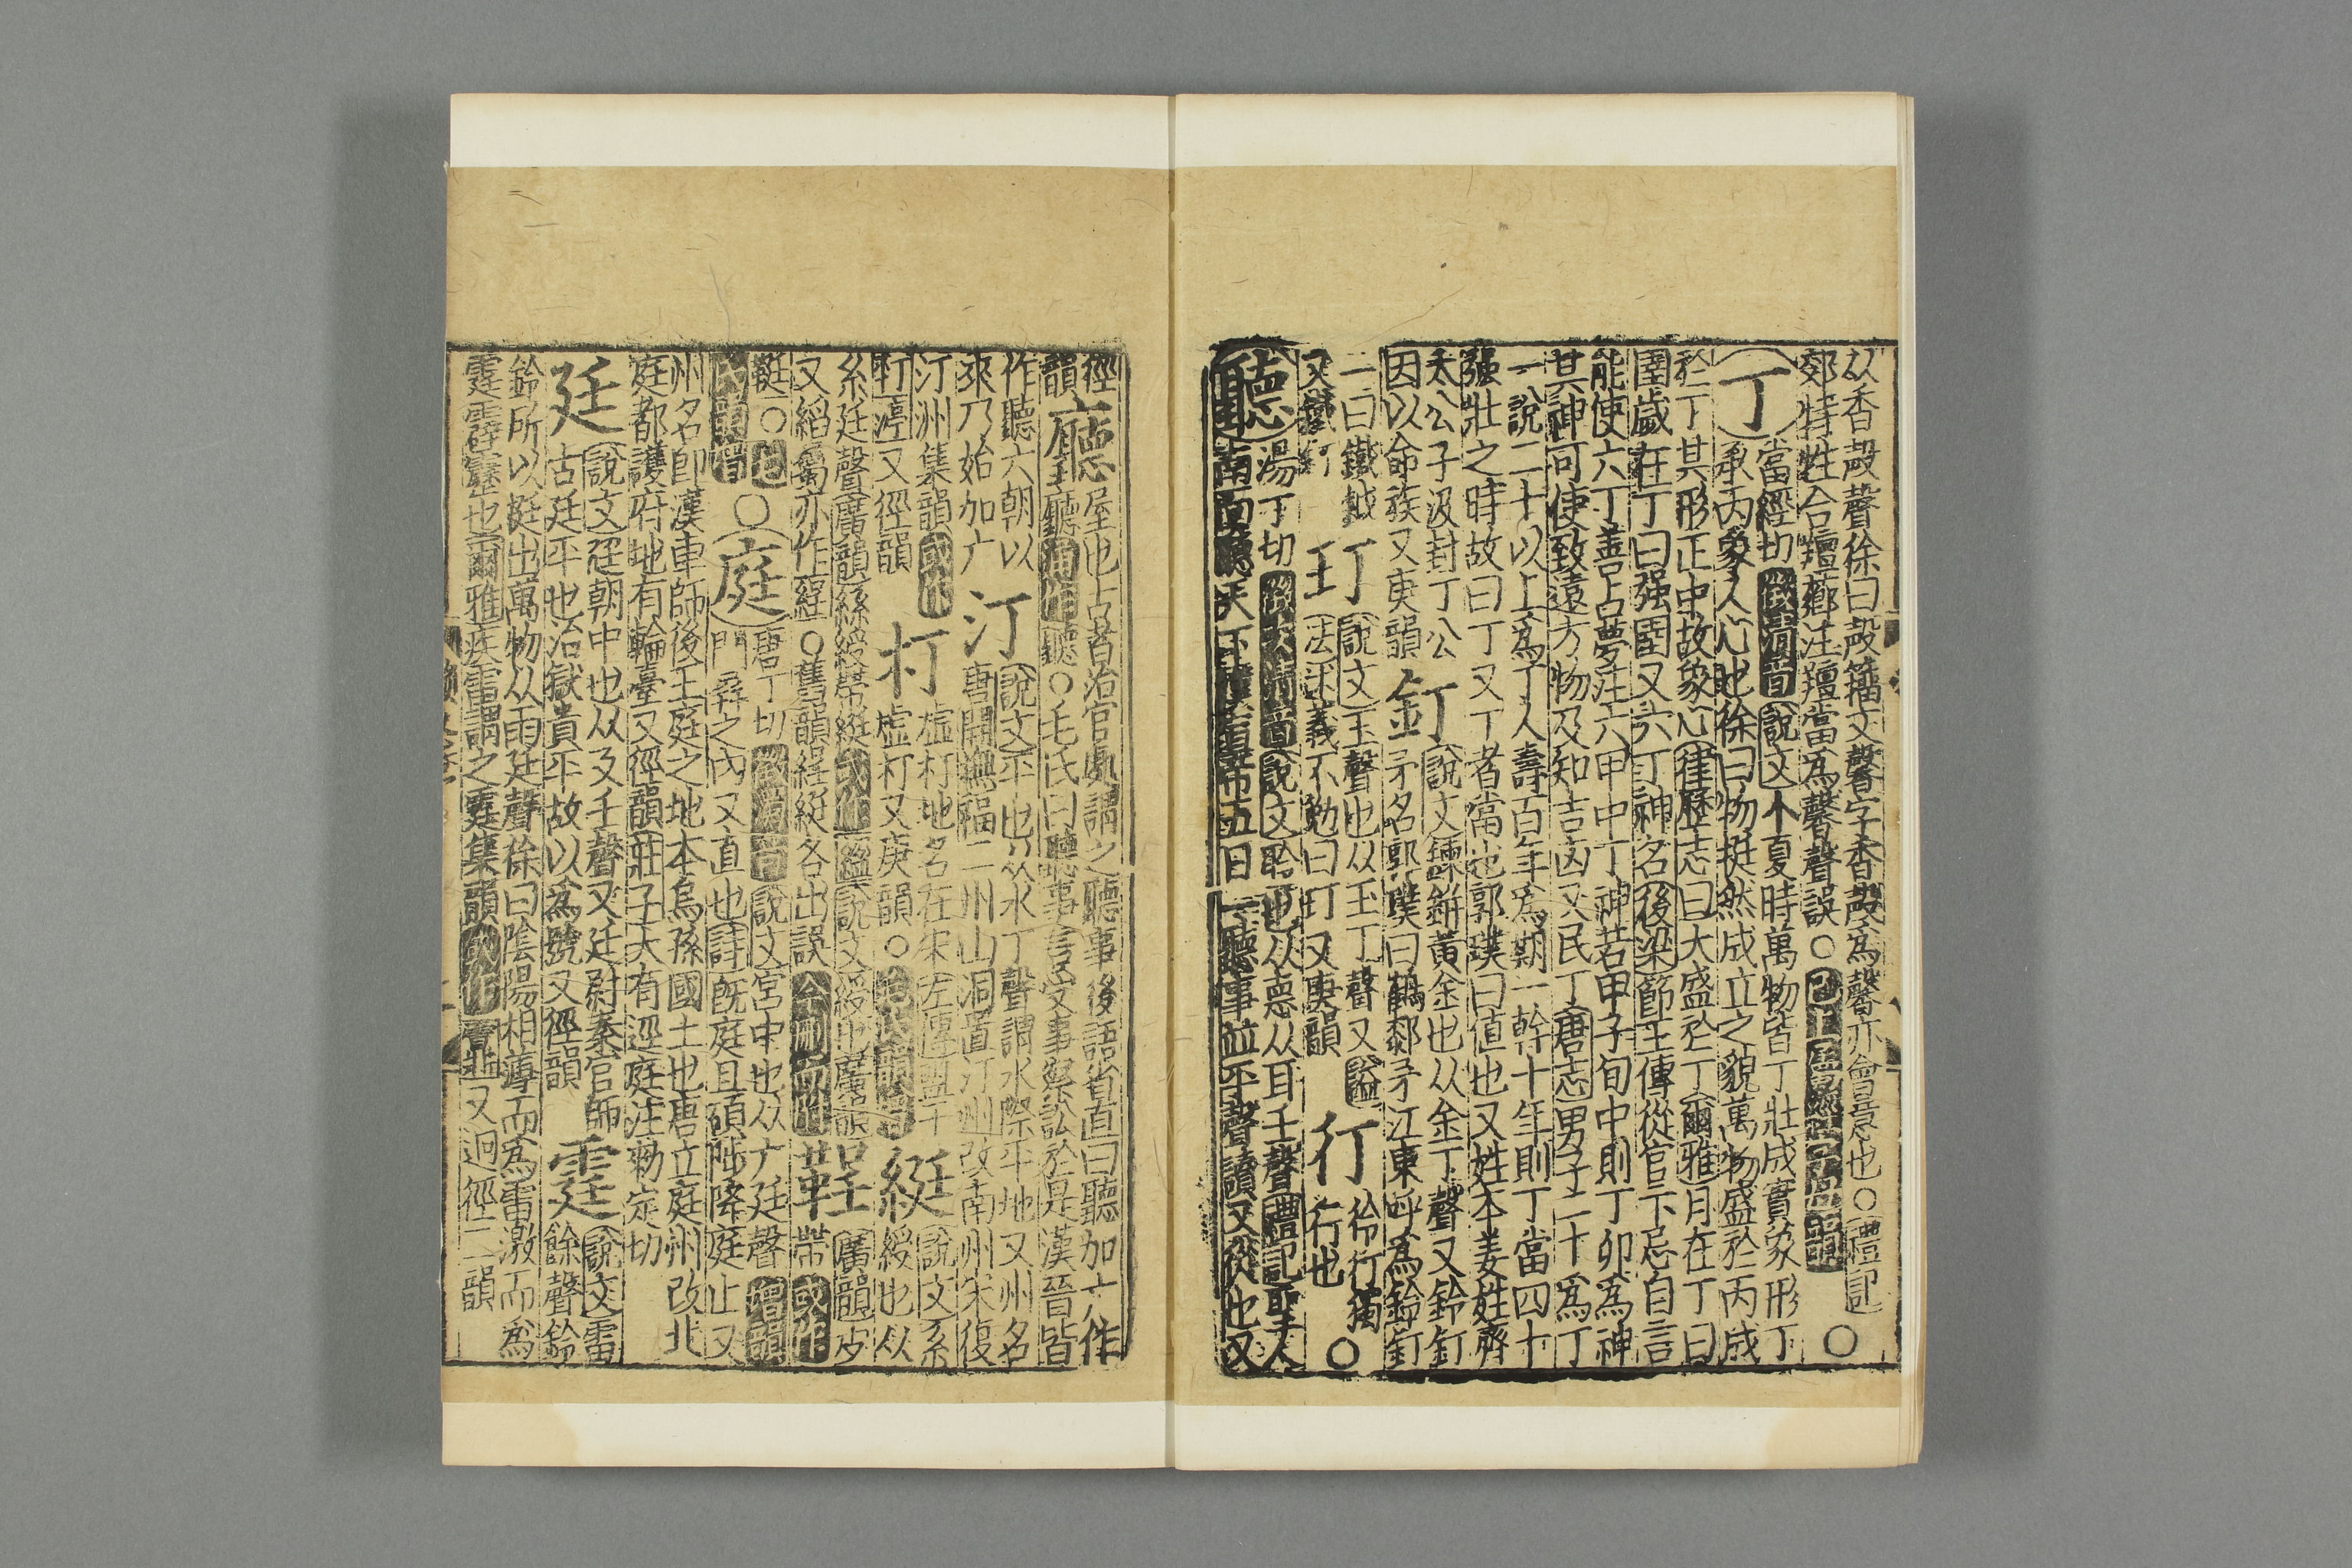 从香殸聲徐曰殸籀文磬字香殸爲馨亦會意也○禮記
郊特牲合羶薌注羶當爲馨聲誤○
○
丁
當經切徵清音說文个夏時萬物皆丁壯成實象形丁
承丙象人心也徐曰物挺然成立之貌萬物盛於丙成
於丁其形正中故象心律歷志曰大盛於丁爾雅月在丁曰
圉歲在丁曰强圉又六丁神名後梁節王傳從官卞忌自言
能使六丁善占夢注六甲中丁神若甲子旬中則丁卯爲神
其神可使致遠方物及知吉凶又民丁唐志男子二十爲丁
一說二十以上爲丁人壽百年爲期一幹十年則丁當四十
强壯之時故曰丁又丁者當也郭璞曰值也又姓本姜姓齊
太公子汲封丁公
因以命族又庚韻
釘
說文鍊鉼黃金也从金丁聲又鈴釘
矛名郭璞曰鶴郯矛江東呼爲鈴釘
一曰鐵鉞
又鐵釘
玎
說文玉聲也从玉丁聲又謚
法述義不勉曰玎又庚韻
行
彾行獨
行也
○
聽
湯丁切徵次清音說文聆也从悳从耳𡈼聲禮記聖人
南面聽天下釋
五日一聽事並平聲讀又從也又
徑
韻
廳
屋也古者治官處謂之聽事後語省直曰聽加广作
廳通作聽○毛氏曰聽事言受事察訟於是漢晉皆
作聽六朝以
來乃始加广
汀
說文平也从水丁聲謂水際平地又州名
唐開撫福二州山洞置汀州改南州宋復
汀洲集韻或作
䟓渟又徑韻
朾
虛朾地名在宋左傳盟于
虛朾又庚韻○
綎
說文系
綬也从
糸廷聲廣韻絲綬帶綎或作䋼說文綬也廣韻
又縚屬亦作䋼○舊韻䋼綎各出誤今刪併作
鞓
廣韻皮
帶或作
鞕○
○
庭
唐丁切徵濁音說文宮中也从广廷聲增韻
門屏之內又直也詩旣庭且碩陟降庭止又
州名卽漢車師後王庭之地本烏孫國土也唐立庭州改北
庭都護府地有輪臺又徑韻莊子大有逕庭注勑定切
廷
說文廷朝中也从廴𡈼聲又廷尉秦官師
古廷平也治獄貴平故以爲號又徑韻
霆
說文雷
餘聲鈴
鈴所以挺出萬物从雨廷聲徐曰陰陽相薄而爲雷激而爲
霆霹靂也爾雅疾雷謂之霆集韻或作
又迥徑二韻